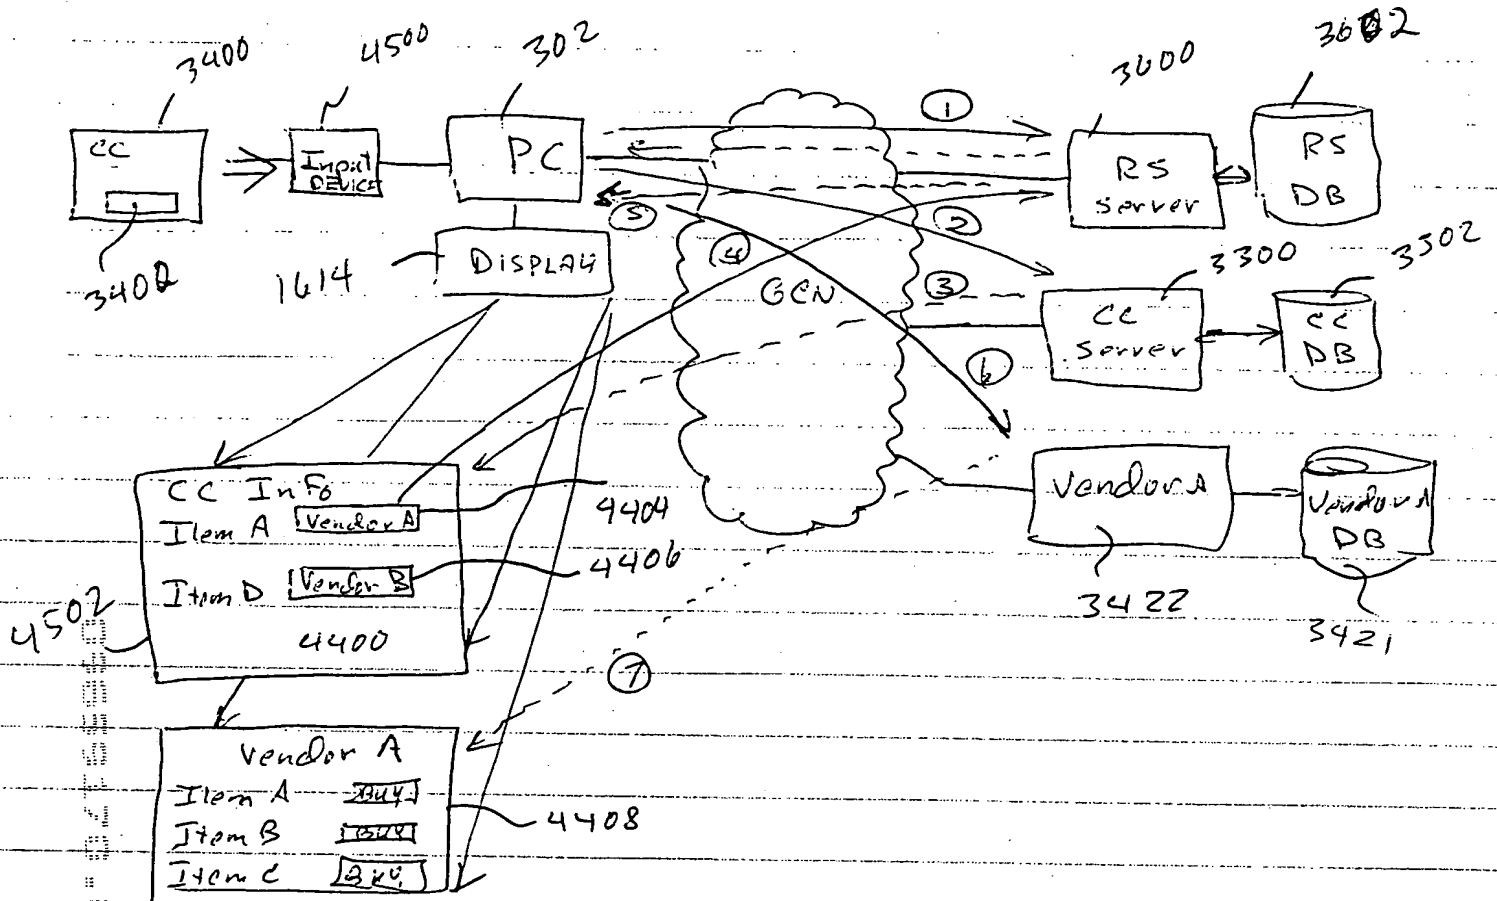 3400
4500
302
3600
3602
CC
Input
DEVICE
PC
RS
Server
RS
DB
3402
1614
DISPLAY
GCN
1
2
3
4
5
6
7
3300
3502
CC
Server
CC
DB
CC Info
Item A Vendor A
4404
Item D Vendor B
4406
4400
4502
Vendor A
3422
Vendor A
DB
3421
Vendor A
Item A Buy
Item B Buy
Item C Buy
4408